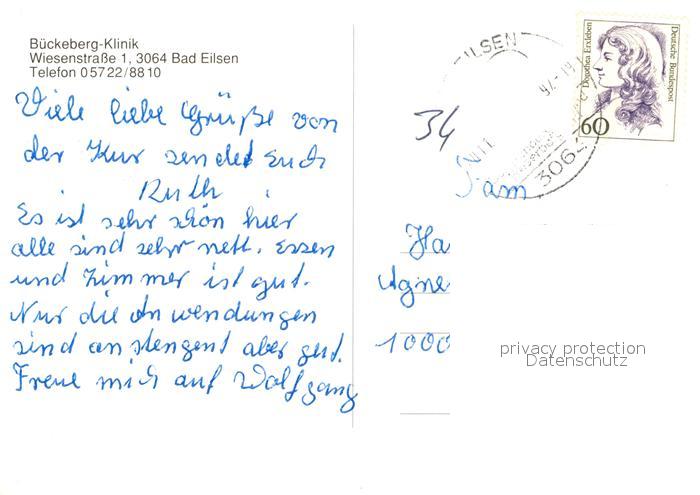 Bückeberg-Klinik
Wiesenstraße 1, 3064 Bad Eilsen
Telefon 05722/8810
Viele liebe Grüße von
der Kur sendet Euch
Ruth
Es ist sehr schön hier
alle sind sehr nett. Essen
und Zimmer ist gut.
Nur die Anwendungen
sind anstengent aber gut.
Freue mich auf Wolfgang
EILSEN
3064
Dorothea Erxleben
Deutsche Bundespost
60
34
Fam
Ha
Agne
1000
privacy protection
Datenschutz